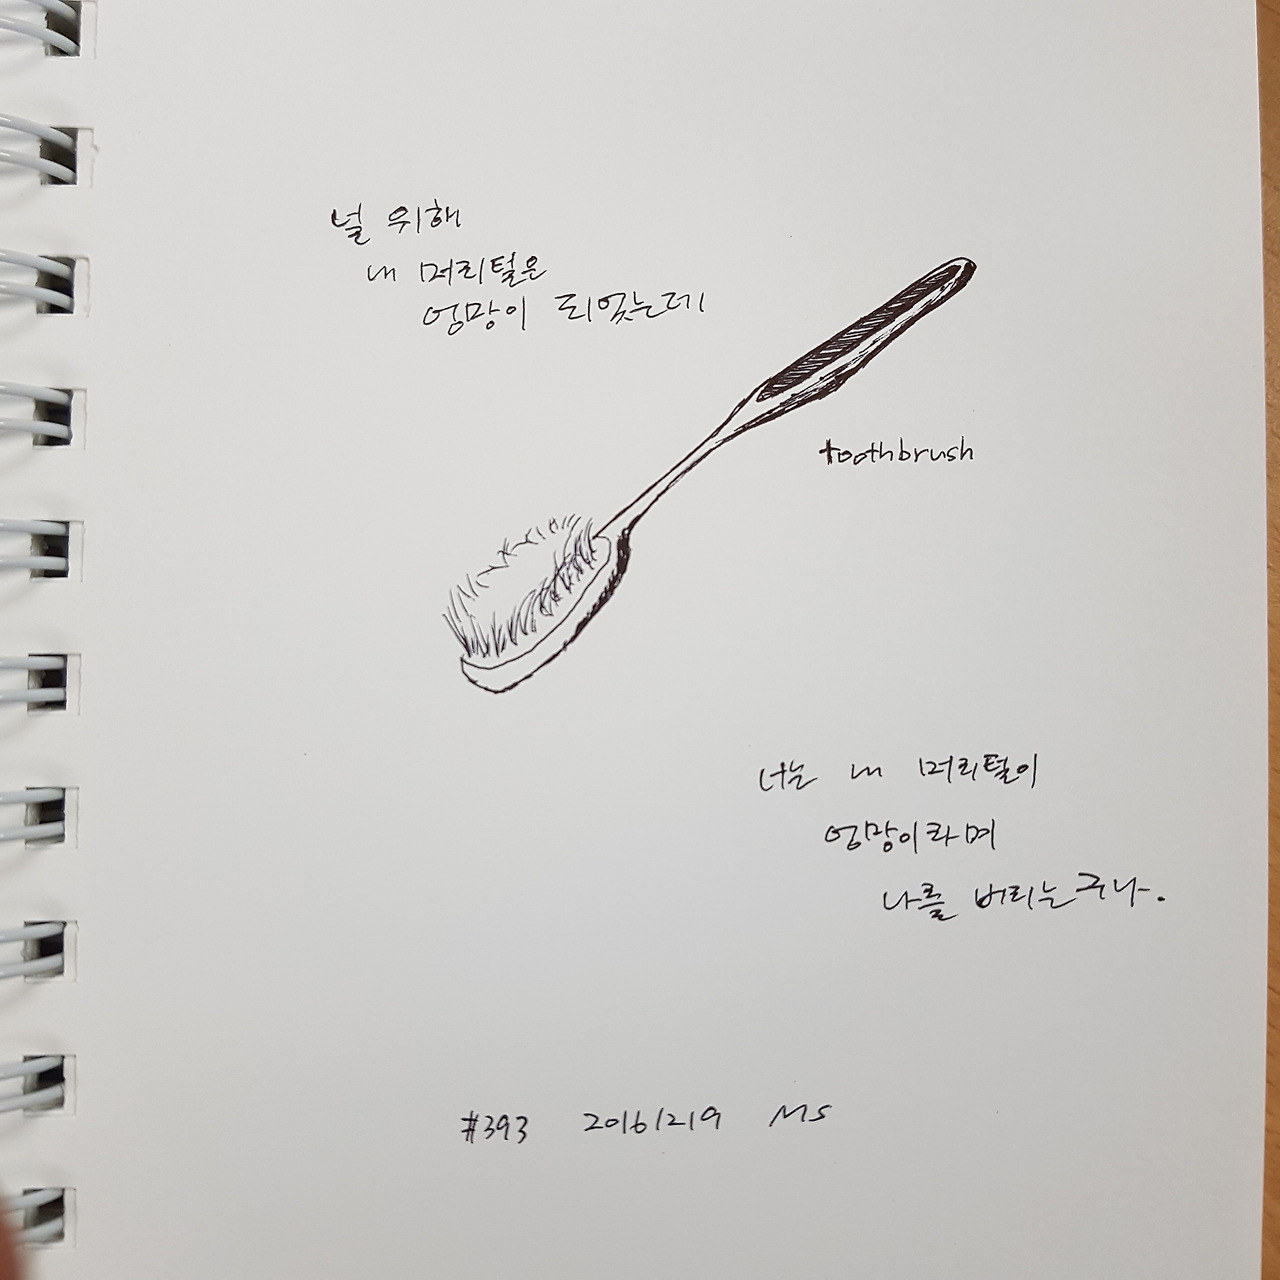 널 위해
내 머리털은
엉망이 되었는데
toothbrush
너는 내 머리털이
엉망이라며
나를 버리는구나.
#393 20161219 MS